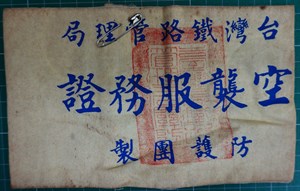 台灣鐵路管理局
空襲服務證
防護團製